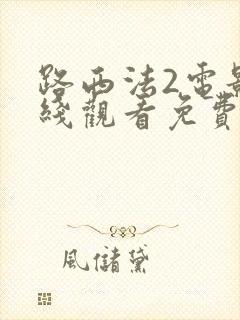 路西法2電影
綫觀看免費
風儲黛